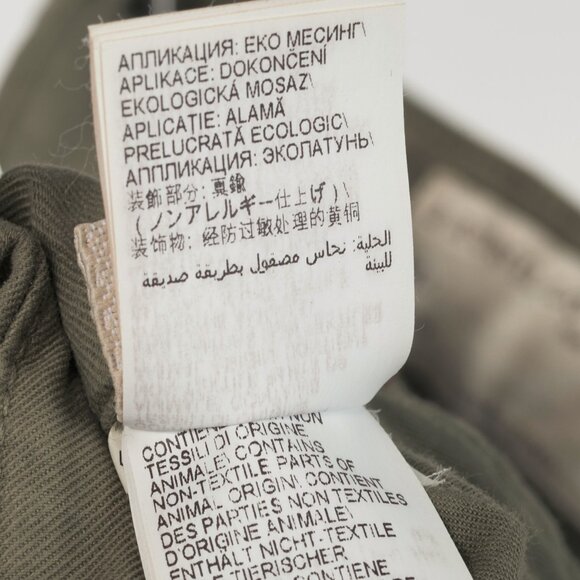 АПЛИКАЦИЯ: ЕКО МЕСИНГ\
APLIKACE: DOKONČENÍ
EKOLOGICKÁ MOSAZ\
APLICAȚIE: ALAMĂ
PRELUCRATĂ ECOLOGIC\
АППЛИКАЦИЯ: ЭКОЛАТУНЬ\
装飾部分: 真鍮
(ノンアレルギー仕上げ)\
装饰物: 经防过敏处理的黄铜
الحلية: نحاس مصقول بطريقة صديقة
للبيئة
CONTIENE NON
TESSILI DI ORIGINE
ANIMALE\ CONTAINS
NON-TEXTILE PARTS OF
ANIMAL ORIGIN\ CONTIENT
DES PARTIES NON TEXTILES
D'ORIGINE ANIMALE\
ENTHÄLT NICHT-TEXTILE
TIERISCHER
CONTIENE